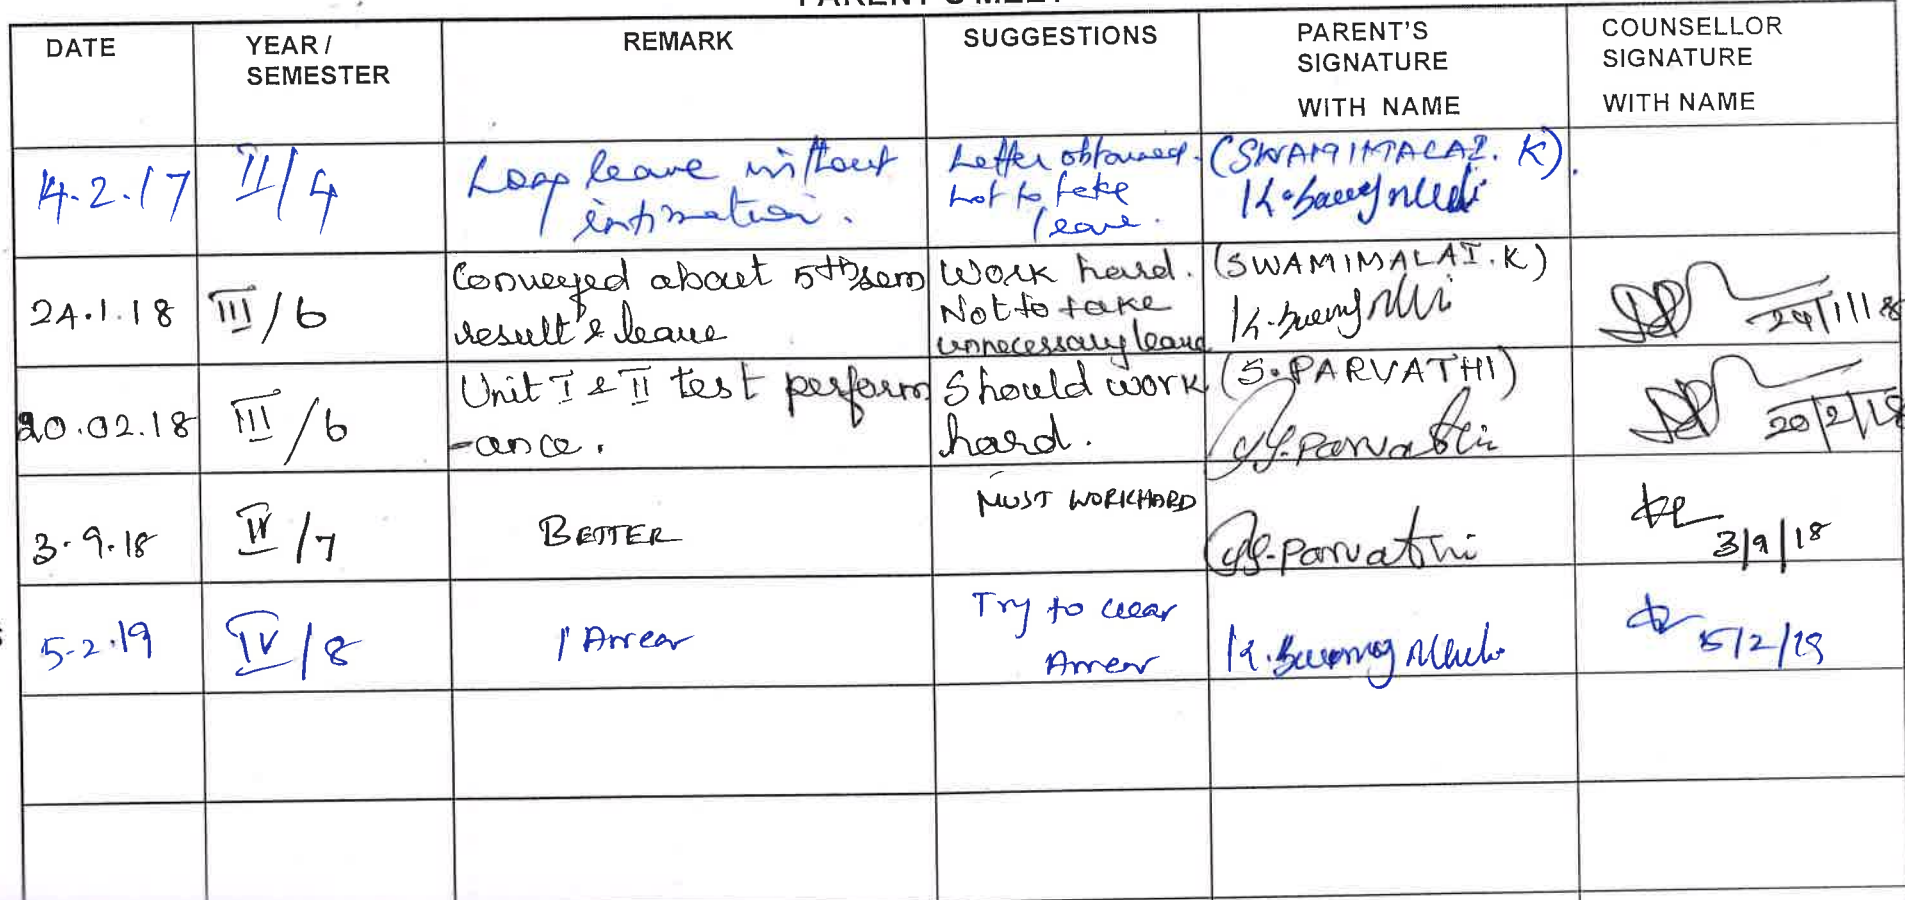 PARENT'S MEET
DATE YEAR / SEMESTER REMARK SUGGESTIONS PARENT'S SIGNATURE WITH NAME COUNSELLOR SIGNATURE WITH NAME
4.2.17 II/4
Long leave without
intimation.
Letter obtained.
Not to take
leave.
(SWAMIMALAI. K).
24.1.18 III/6
Conveyed about 5th sem
result & leave
Work hard.
Not to take
unnecessary leave
(SWAMIMALAI. K)
24/1/18
20.02.18 III/6
Unit I & II test perform
-ance.
Should work
hard.
(S. PARVATHI)
S. Parvathi
20/2/18
3.9.18 IV/7
BETTER
MUST WORKHARD
S. Parvathi
3/9/18
5.2.19 IV/8
1 Arrear
Try to clear
Arrear
5/2/19